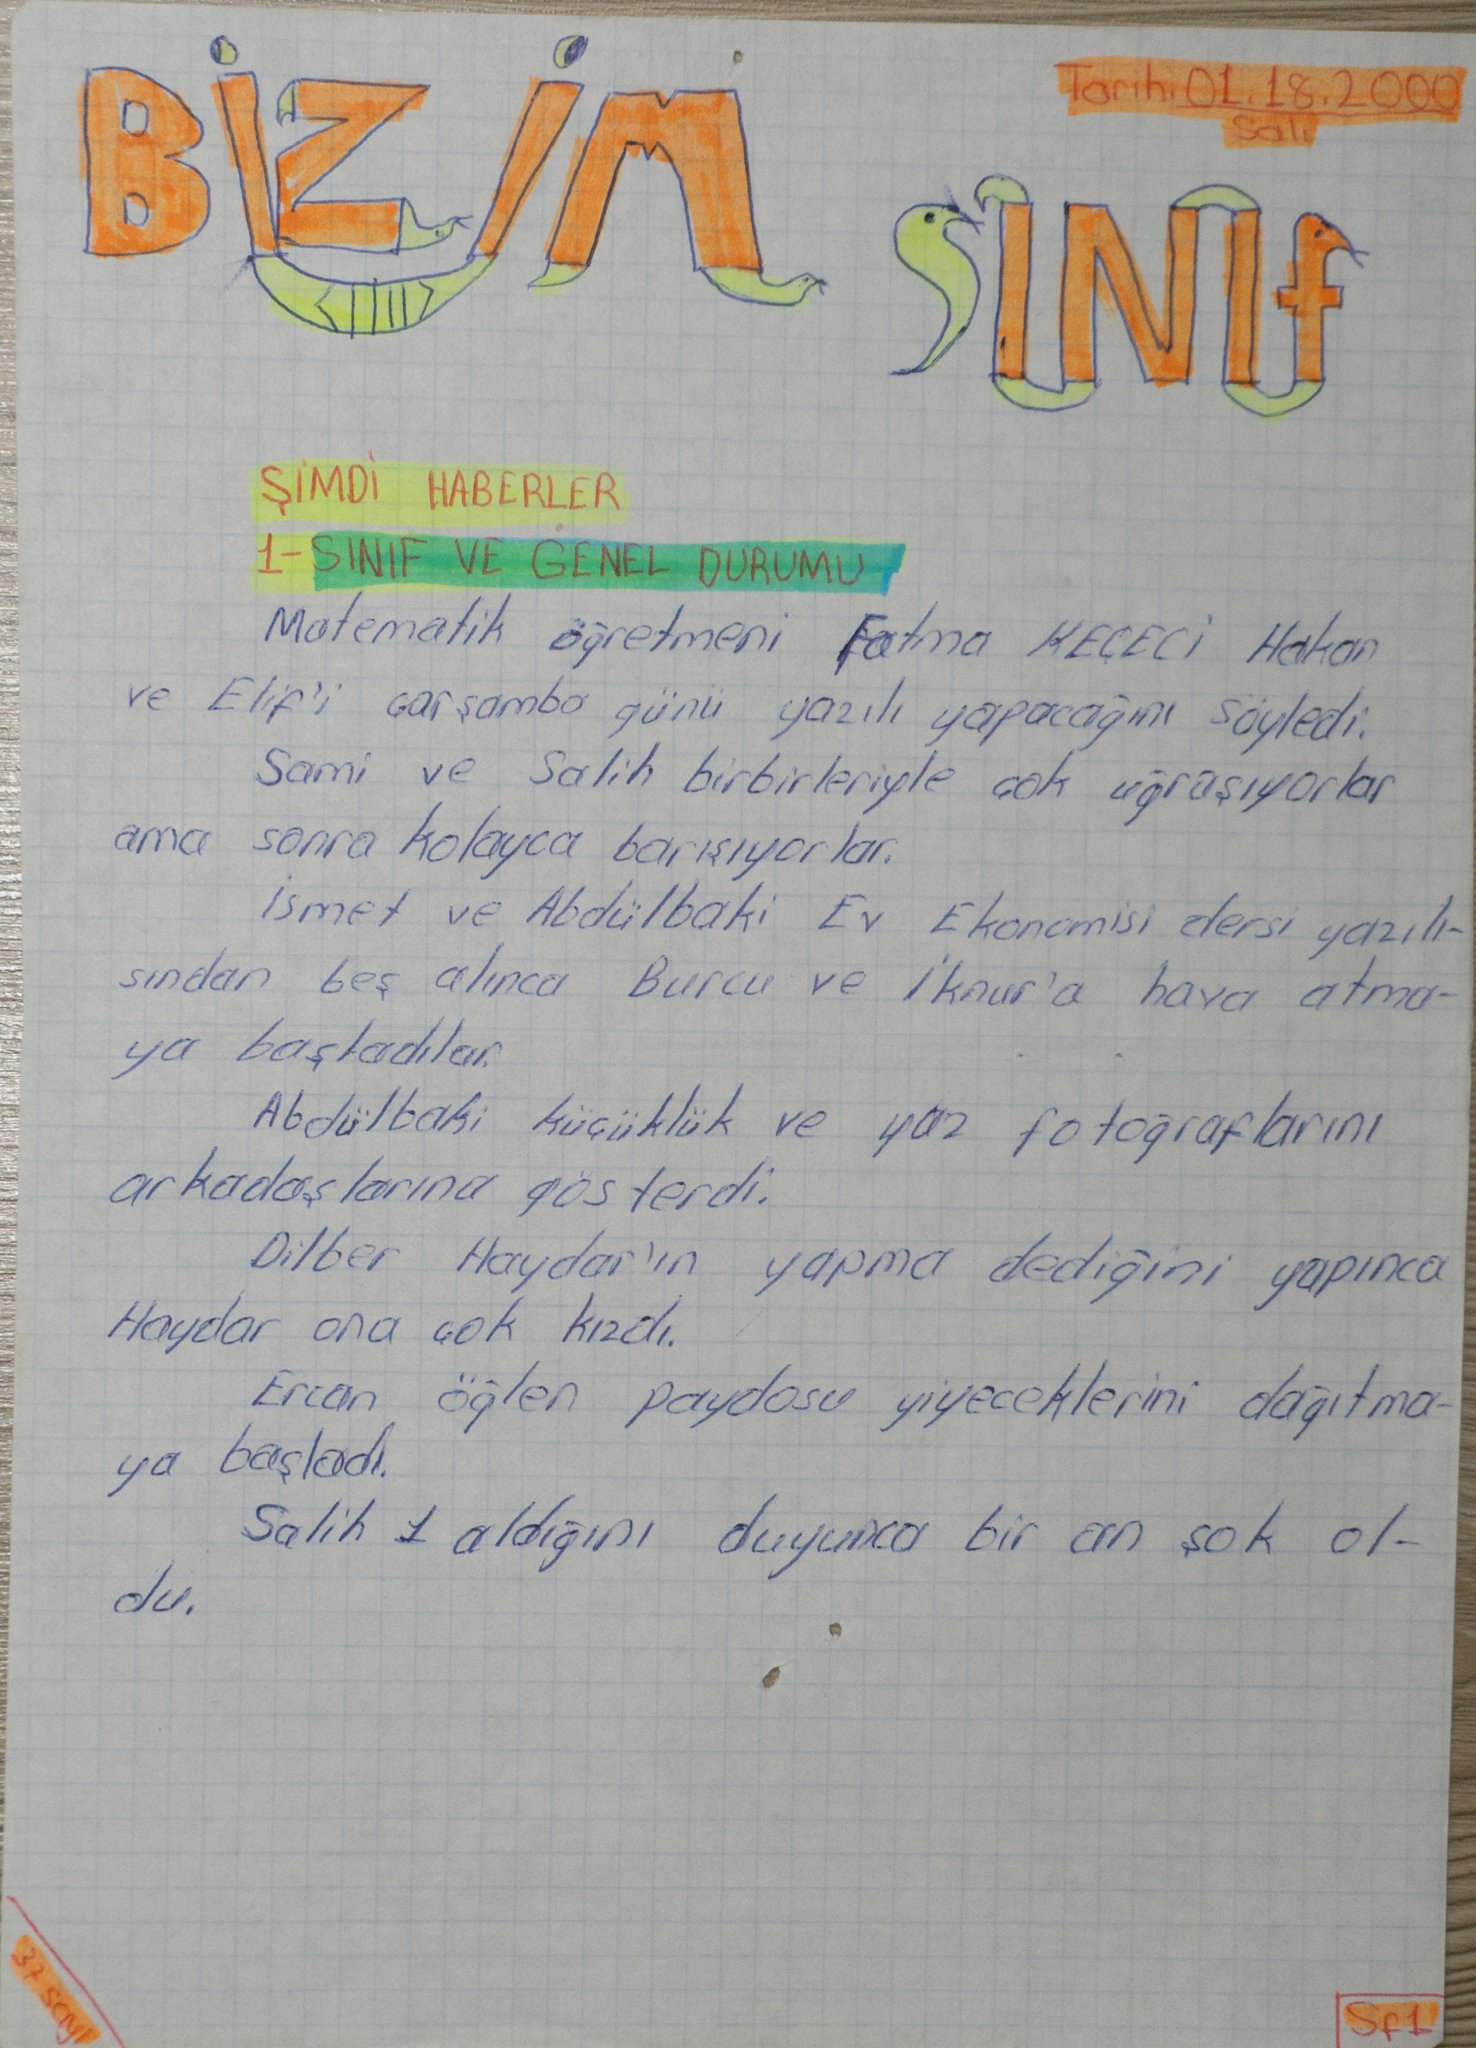 BİZİM SINIf
Tarihi 01.18.2000
Salı
ŞİMDİ HABERLER
1- SINIF VE GENEL DURUMU
Matematik öğretmeni Fatma KEÇECİ Hakan
ve Elif'i çarşamba günü yazılı yapacağını söyledi.
Sami ve Salih birbirleriyle çok uğraşıyorlar
ama sonra kolayca barışıyorlar.
İsmet ve Abdülbaki Ev Ekonomisi dersi yazılı-
sından beş alınca Burcu ve İknur'a hava atma-
ya başladılar.
Abdülbaki küçüklük ve yaz fotoğraflarını
arkadaşlarına gösterdi.
Dilber Haydar'ın yapma dediğini yapınca
Haydar ona çok kızdı.
Ercan öğlen paydosu yiyeceklerini dağıtma-
ya başladı.
Salih 1 aldığını duyunca bir an şok ol-
du.
37 sayı
Sf 1